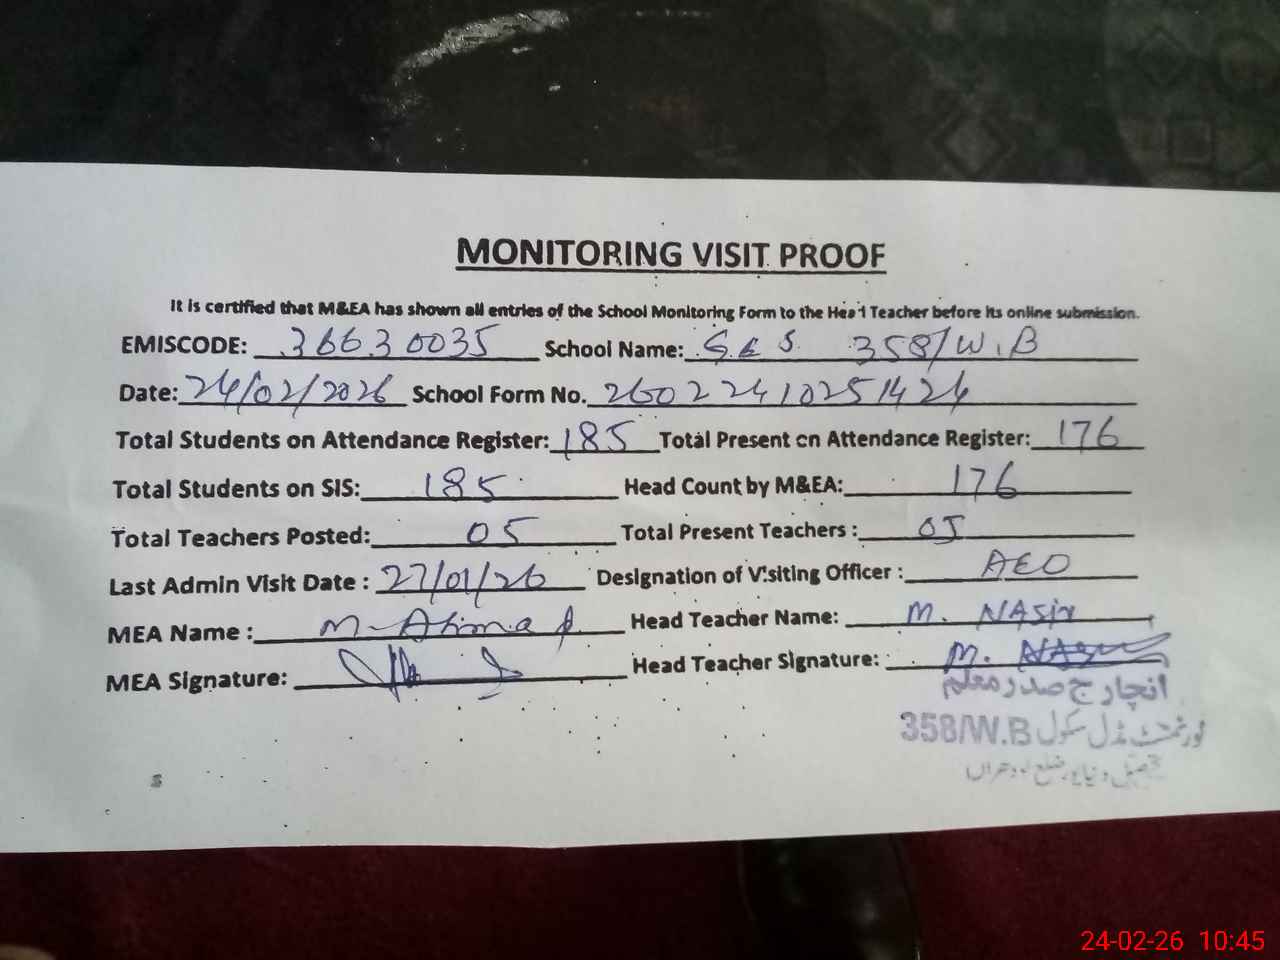 MONITORING VISIT PROOF
It is certified that M&EA has shown all entries of the School Monitoring Form to the Head Teacher before its online submission.
EMISCODE: 36630035 School Name: G.E.S. 358/W.B
Date: 24/02/2026 School Form No. 26022410251424
Total Students on Attendance Register: 185 Total Present on Attendance Register: 176
Total Students on SIS: 185 Head Count by M&EA: 176
Total Teachers Posted: 05 Total Present Teachers : 05
Last Admin Visit Date : 27/01/26 Designation of Visiting Officer : AEO
MEA Name : M. Head Teacher Name: M. NASIR
MEA Signature: Head Teacher Signature: M.
انچارج صدر معلم
گورنمنٹ مڈل سکول 358/W.B
تحصیل دنیاپور ضلع لودھراں
24-02-26 10:45